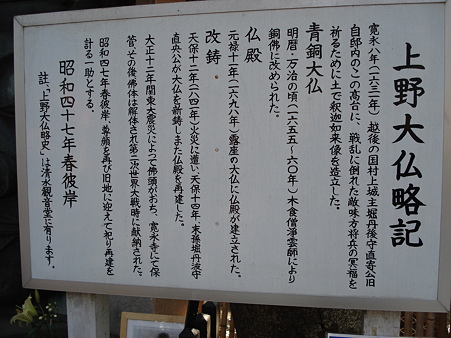 上野大仏略記
寛永八年(一六三一年)越後の国村上城主堀丹後守直寄公旧
自邸内のこの高台に、戦乱に倒れた敵味方将兵の冥福を
祈るために土で釈迦如来像を造立した。
青銅大仏
明暦・万治の頃(一六五五~六〇年)木食僧浄雲師により
銅佛に改められた。
仏殿
元禄十一年(一六九八年)露座の大仏に仏殿が建立された。
改鋳
天保十二年(一八四一年)火災に遭い天保十四年、末孫堀丹波守
直央公が大仏を新鋳しまた仏殿を再建した。
大正十二年関東大震災によつて佛頭がおち、寛永寺にて保
管、その後佛体は解体され第二次世界大戦時に献納された。
昭和四十七年春彼岸、尊顔を再び旧地に迎えて祀り再建を
計る一助とする。
昭和四十七年春彼岸
註、「上野大仏略史」は清水観音堂に有ります。